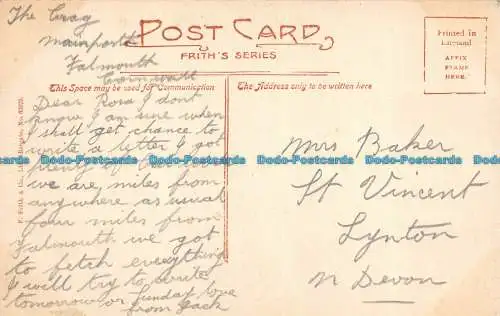 The Crag
Mainporth
Falmouth
Cornwall
POST CARD
FRITH'S SERIES
Printed in
England
AFFIX
STAMP
HERE.
This Space may be used for Communication
The Address only to be written here
Dear Rosa I dont
know I am sure when
I shall get chance to
write a letter I got
plenty of
we are, miles from
anywhere as usual
four miles from
Falmouth we got
to fetch everything
I will try to write
tomorrow or Sunday love
from Jack
Mrs Baker
St Vincent
Lynton
N Devon
F. Frith & Co., Ltd., Reigate. No.
Dodo-Postcards Dodo-Postcards Dodo-Postcards Dodo-Postcards